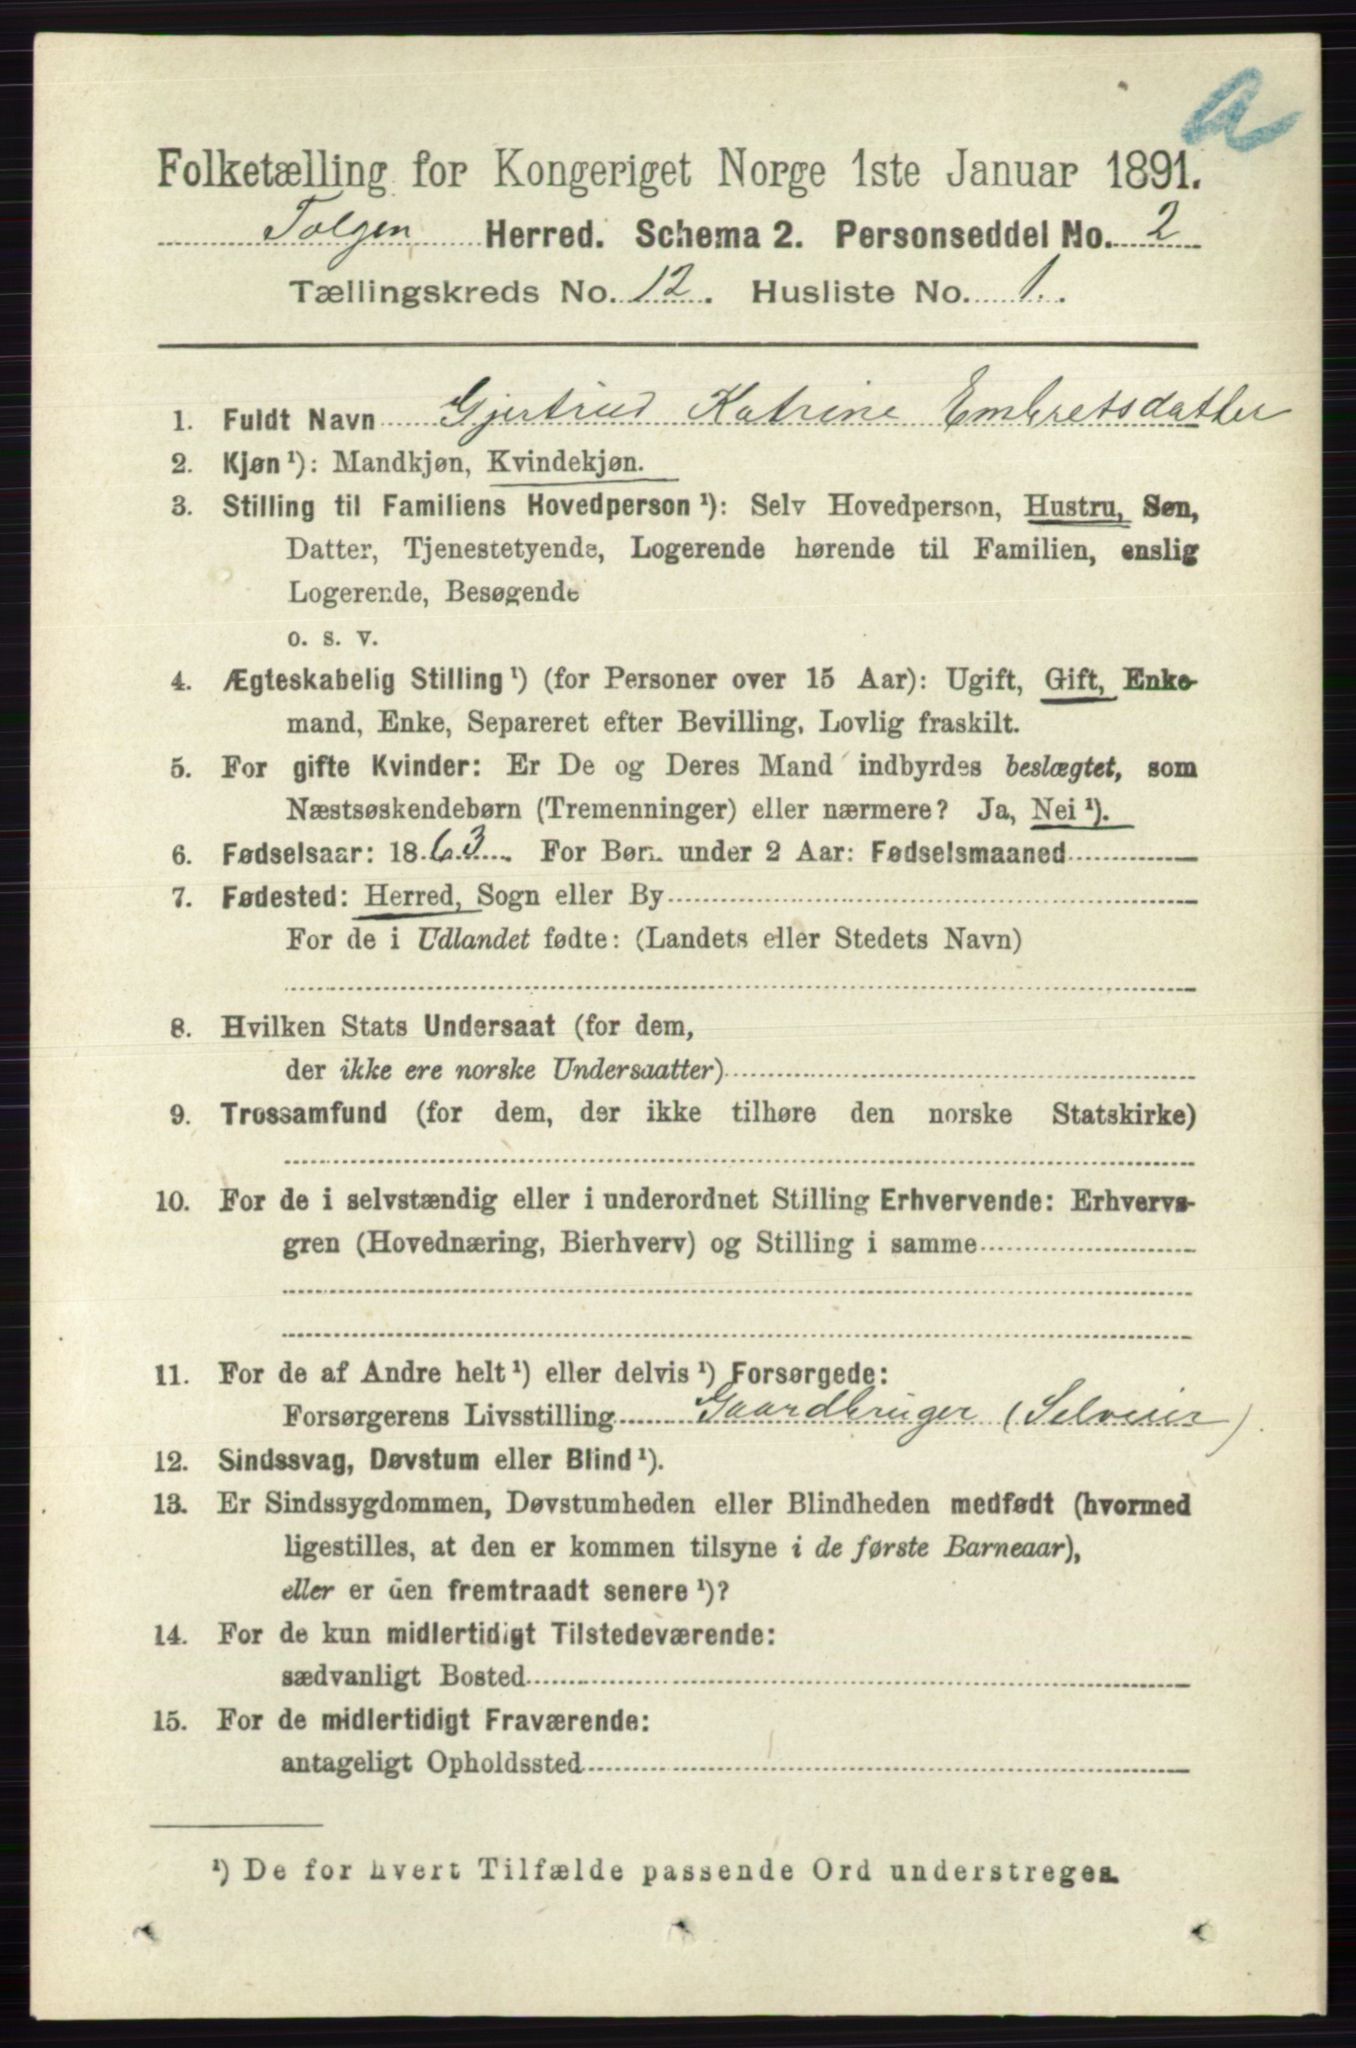 a
Folketælling for Kongeriget Norge 1ste Januar 1891.
Tolgen Herred. Schema 2. Personseddel No. 2
Tællingskreds No. 12. Husliste No. 1.
1. Fuldt Navn Gjertrud Katrine Embretsdatter
2. Kjøn ¹): Mandkjøn, Kvindekjøn.
3. Stilling til Familiens Hovedperson ¹): Selv Hovedperson, Hustru, Søn,
Datter, Tjenestetyende, Logerende hørende til Familien, enslig
Logerende, Besøgende
o. s. v.
4. Ægteskabelig Stilling ¹) (for Personer over 15 Aar): Ugift, Gift, Enke-
mand, Enke, Separeret efter Bevilling, Lovlig fraskilt.
5. For gifte Kvinder: Er De og Deres Mand indbyrdes beslægtet, som
Næstsøskendebørn (Tremenninger) eller nærmere? Ja, Nei ¹).
6. Fødselsaar: 1863. For Børn under 2 Aar: Fødselsmaaned
7. Fødested: Herred, Sogn eller By
For de i Udlandet fødte: (Landets eller Stedets Navn)
8. Hvilken Stats Undersaat (for dem,
der ikke ere norske Undersaatter)
9. Trossamfund (for dem, der ikke tilhøre den norske Statskirke)
10. For de i selvstændig eller i underordnet Stilling Erhvervende: Erhvervs-
gren (Hovednæring, Bierhverv) og Stilling i samme
11. For de af Andre helt ¹) eller delvis ¹) Forsørgede:
Forsørgerens Livsstilling Gaardbruger (Selveier)
12. Sindssvag, Døvstum eller Blind ¹).
13. Er Sindssygdommen, Døvstumheden eller Blindheden medfødt (hvormed
ligestilles, at den er kommen tilsyne i de første Barneaar),
eller er den fremtraadt senere ¹)?
14. For de kun midlertidigt Tilstedeværende:
sædvanligt Bosted
15. For de midlertidigt Fraværende:
antageligt Opholdssted
¹) De for hvert Tilfælde passende Ord understreges.